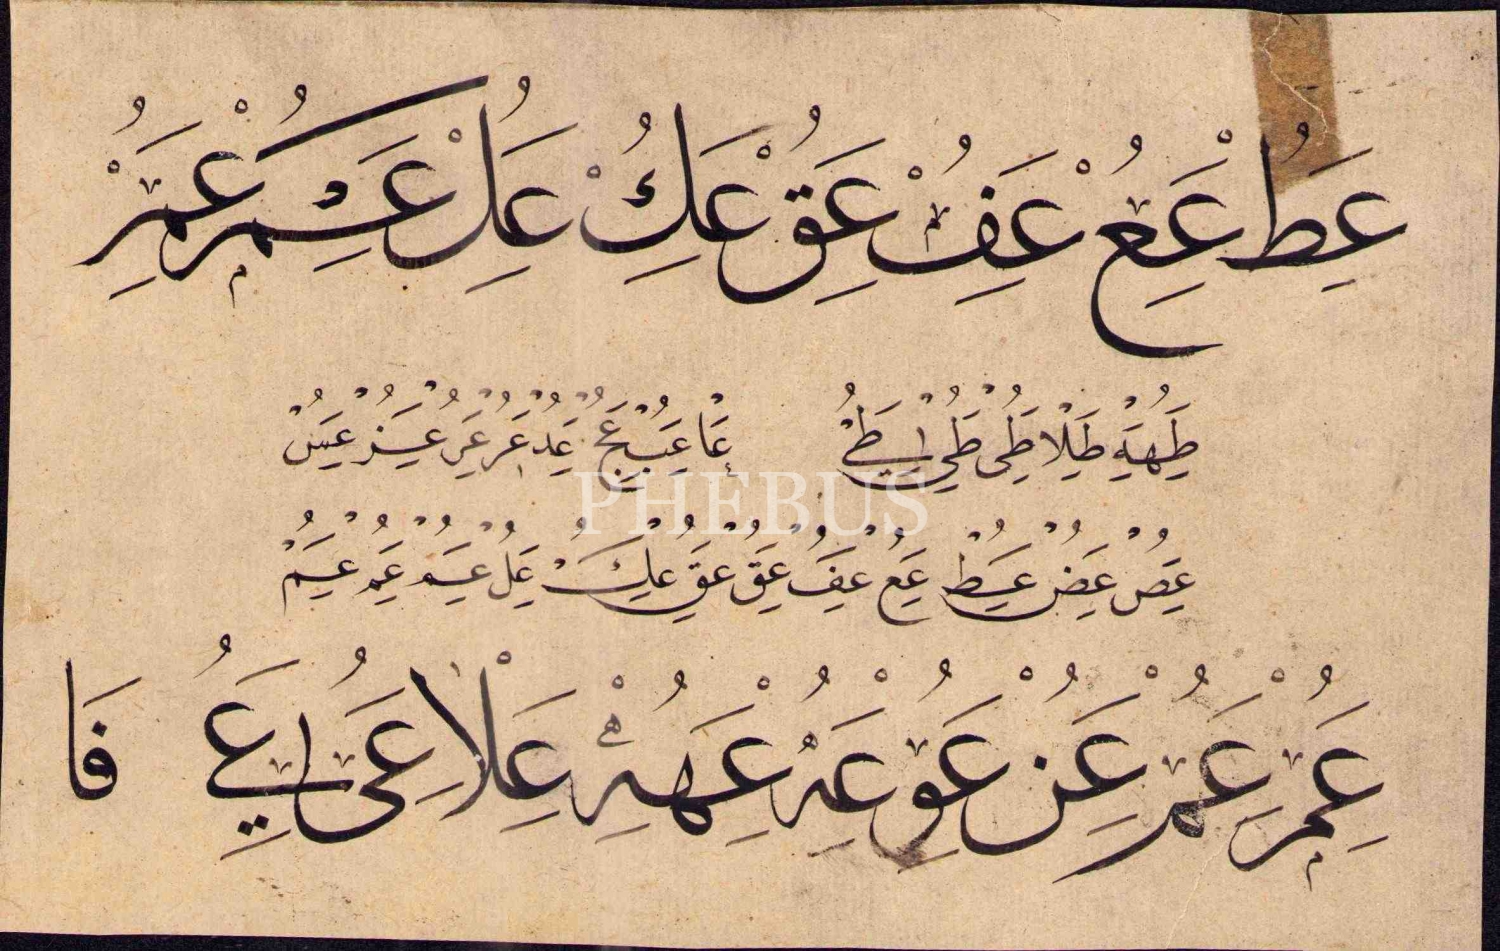 عط عع عف عق عك عل عكم عمر
طهه طلا طى طى طے عا عب عج عد عر عر عز عس
عص عض عط عع عف عق عق عك عل عم عم عم
عمر عم عن عو عه عهه علا عى عے فا
PHEBUS